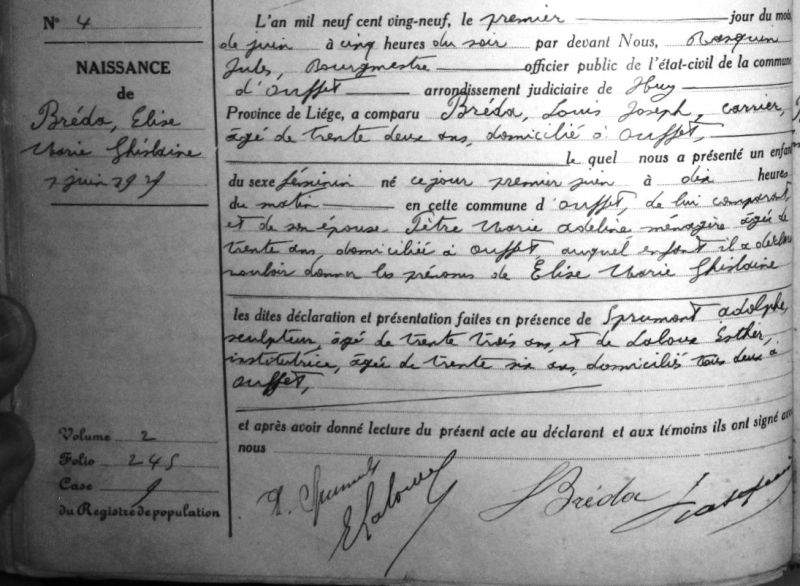 N° 4
NAISSANCE
de
Bréda, Elise
Marie Ghislaine
1 juin 1929
Volume 2
Folio 245
Case 9
du Registre de population
L'an mil neuf cent ving-neuf, le premier jour du mois
de juin à cinq heures du soir par devant Nous, Rasquin
Jules, Bourgmestre officier public de l'état-civil de la commune
d'Ouffet arrondissement judiciaire de Huy
Province de Liége, a comparu Bréda, Louis Joseph, carrier,
âgé de trente deux ans, domicilié à Ouffet,
le quel nous a présenté un enfant
du sexe féminin né ce jour premier juin à dix heures
du matin en cette commune d'Ouffet, de lui comparant
et de son épouse Pètre Marie Adeline ménagère âgée de
trente ans, domiciliée à Ouffet, auquel enfant il a déclaré
vouloir donner les prénoms de Elise Marie Ghislaine
les dites déclaration et présentation faites en présence de Sprumont Adolphe,
sculpteur, âgé de trente trois ans, et de Laloux Esther,
institutrice, âgée de trente six ans, domiciliés tous deux à
Ouffet,
et après avoir donné lecture du présent acte au déclarant et aux témoins ils ont signé avec
nous
A. Sprumont
E Laloux
L Bréda